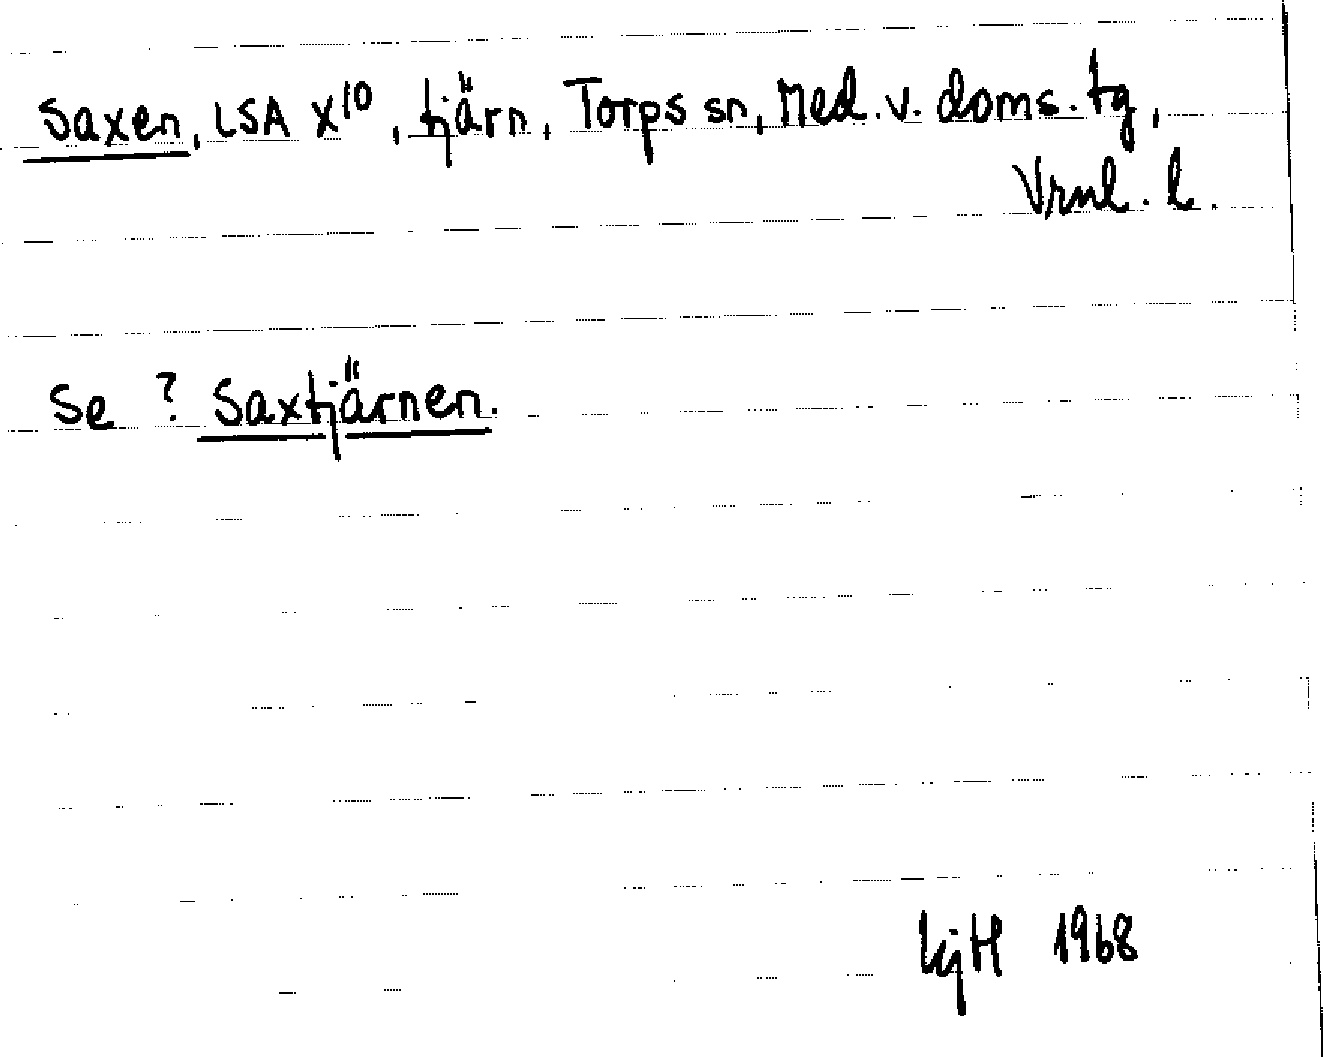 Saxen, LSA X10, tjärn, Torps sn, Med. v. doms. tg,
Vrnl. l.
Se ? Saxtjärnen.
1968